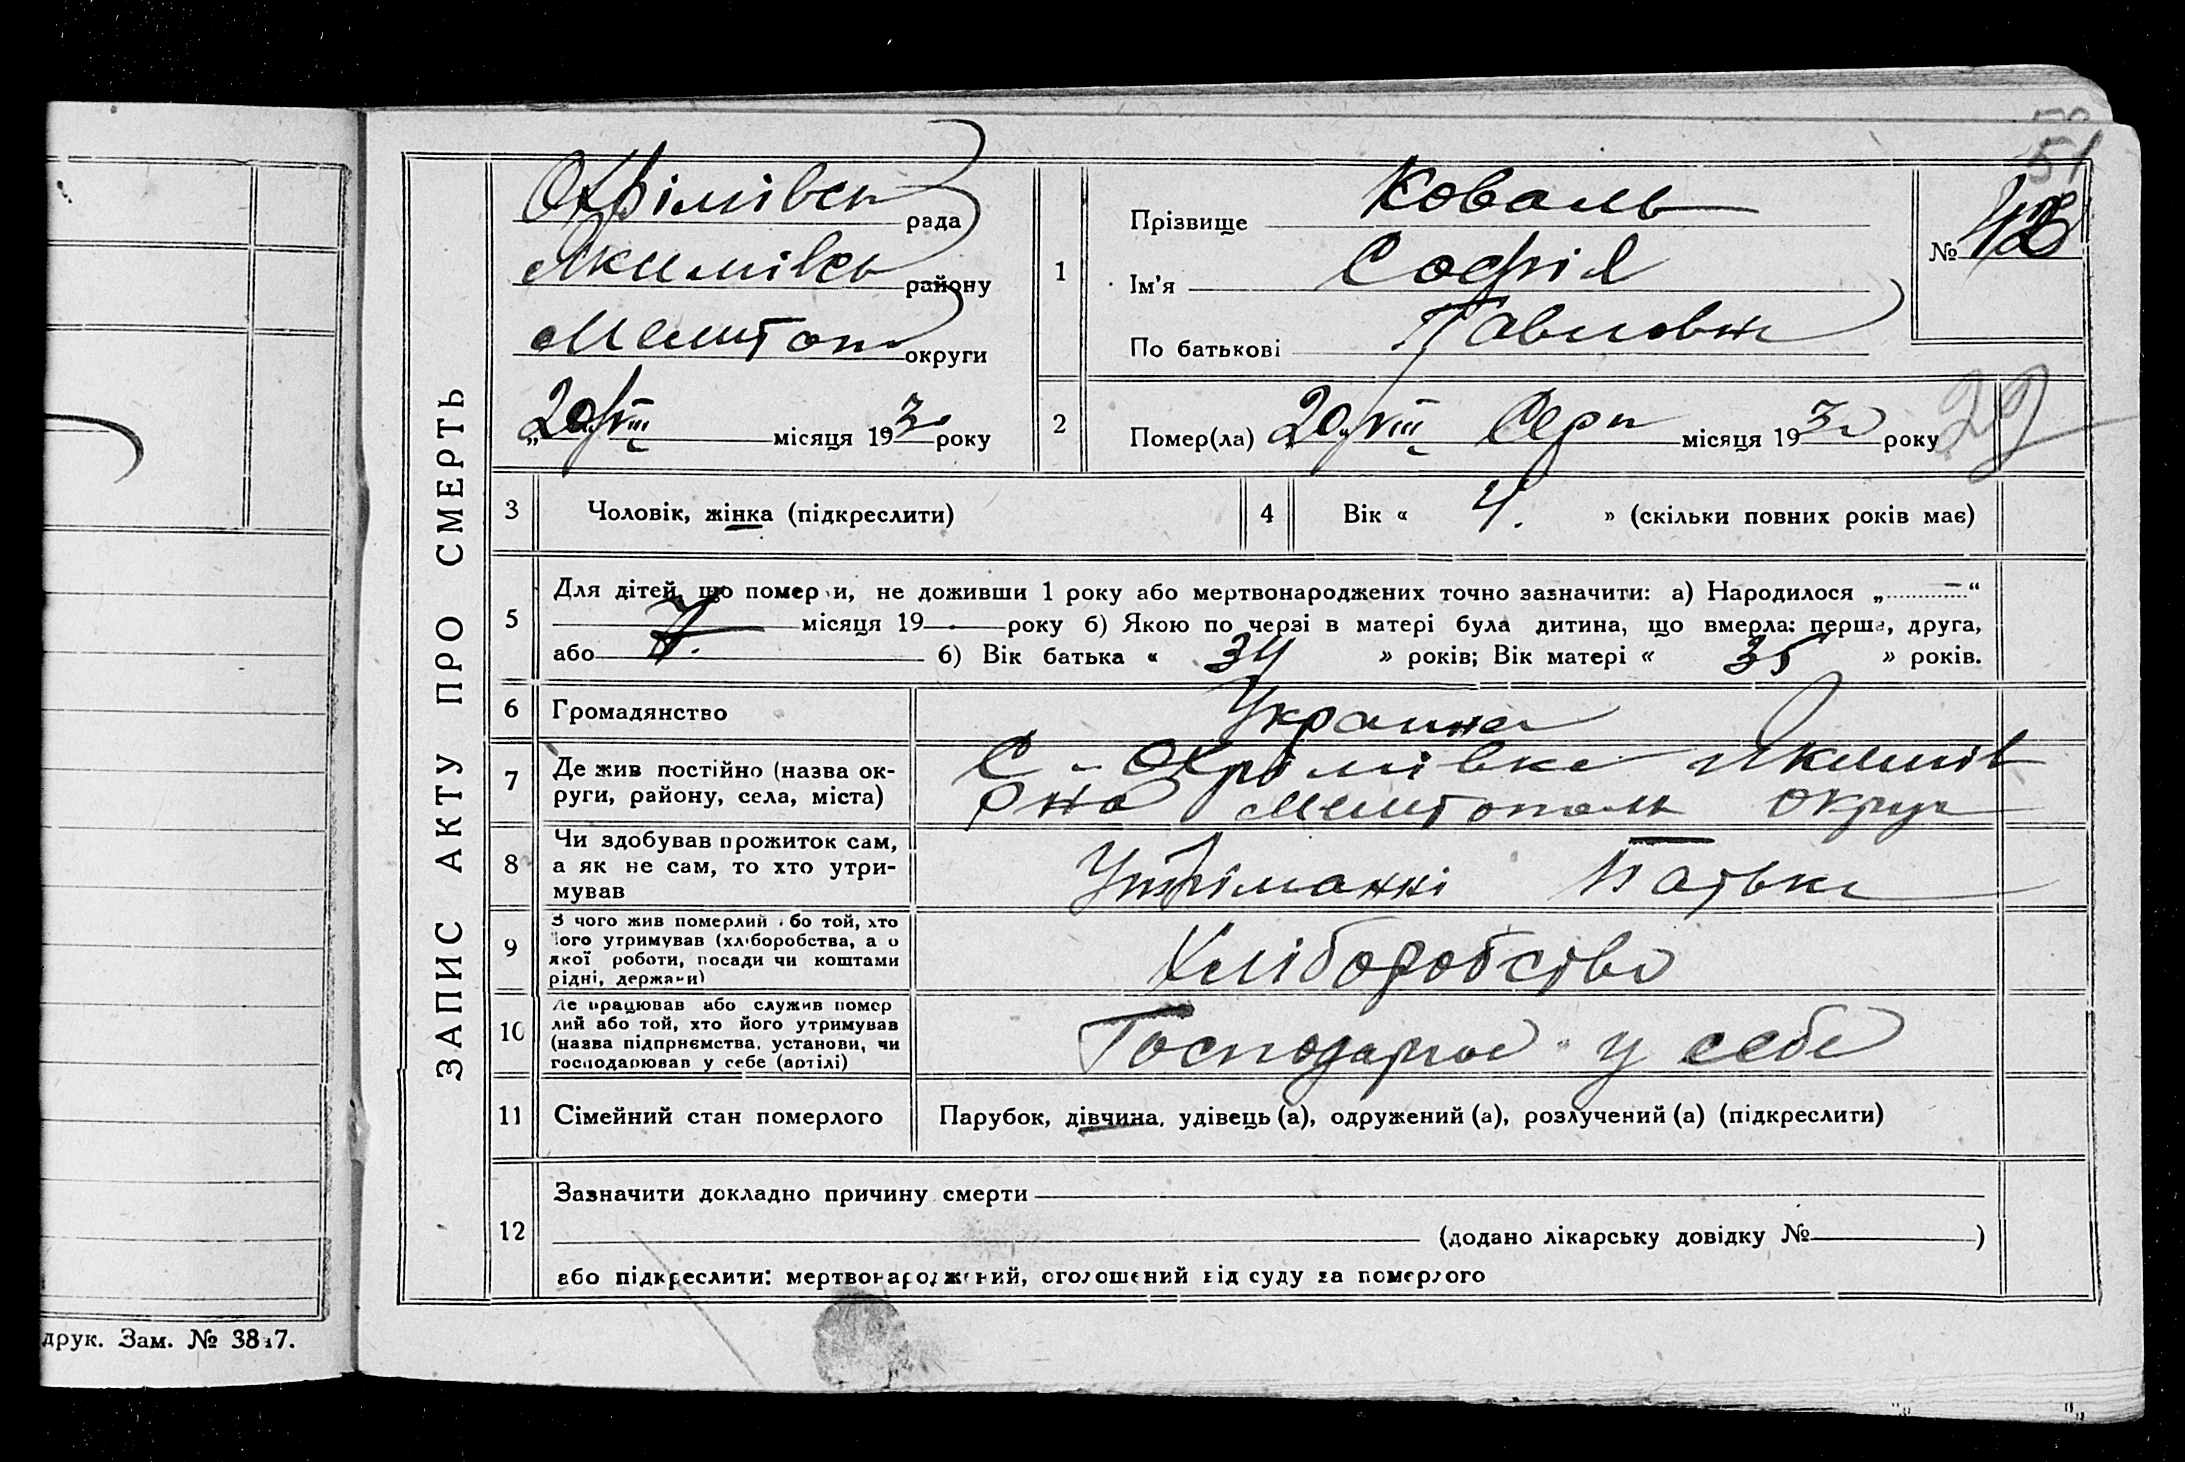 51
ЗАПИС АКТУ ПРО СМЕРТЬ
Охрімівськ рада
Якимівськ району
Мелитоп округи
„20/VIII місяця 1930 року
1
Прізвище Коваль
Ім'я Софія
По батькові Павловн
№ 48
2
Помер(ла) „20/VIII Серп місяця 1930 року
22
3 Чоловік, жінка (підкреслити)
4 Вік « 4. » (скільки повних років має)
5
Для дітей, що померли, не доживши 1 року або мертвонароджених точно зазначити: а) Народилося „ — “
місяця 19 — року б) Якою по черзі в матері була дитина, що вмерла: перша, друга,
або 7. б) Вік батька « 34 » років; Вік матері « 35 » років.
6 Громадянство Украине
7 Де жив постійно (назва ок-
руги, району, села, міста)
С - Охрімівка Якимів
Рна Мелитополь округ
8
Чи здобував прожиток сам,
а як не сам, то хто утри-
мував
Утріманні Батька
9
З чого жив померлий або той, хто
його утримував (хліборобства, а о
якої роботи, посади чи коштами
рідні, держави)
Хліборобство
10
Де працював або служив помер
лий або той, хто його утримував
(назва підприємства, установи, чи
господарював у себе (артілі)
Господарює у себе
11 Сімейний стан померлого Парубок, дівчина, удівець (а), одружений (а), розлучений (а) (підкреслити)
12
Зазначити докладно причину смерти
(додано лікарську довідку № )
або підкреслити: мертвонароджений, оголошений від суду за померлого
друк. Зам. № 3817.